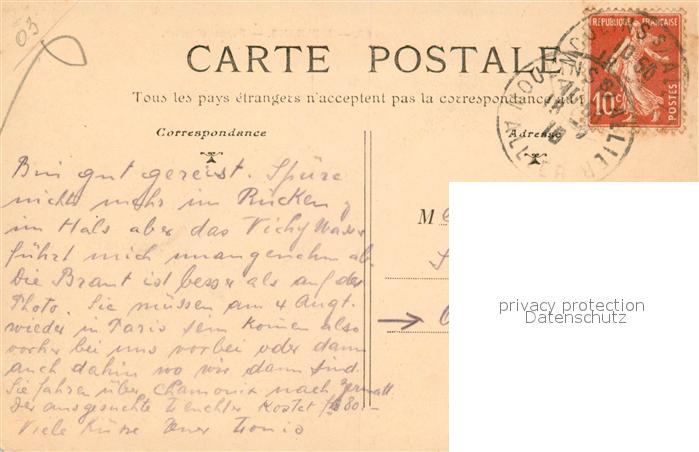 03
CARTE POSTALE
Tous les pays étrangers n'acceptent pas la correspondance au
Correspondance
Adresse
RÉPUBLIQUE FRANÇAISE
10c
POSTES
MOULINS S ALLIER
Bin gut gereist. Spüre
nichts mehr im Rücken &
im Hals aber das Vichy Wasser
führt mich unangenehm ab.
Die Braut ist besser als auf der
Photo. Sie müssen am 4 Augt.
wieder in Paris sein kommen also
vorher bei uns vorbei oder dann
auch dahin wo wir dann sind.
Sie fahren über Chamonix nach Zermatt
Der ausgesuchte Leuchter kostet fr 80.-
Viele Küsse
M
privacy protection
Datenschutz